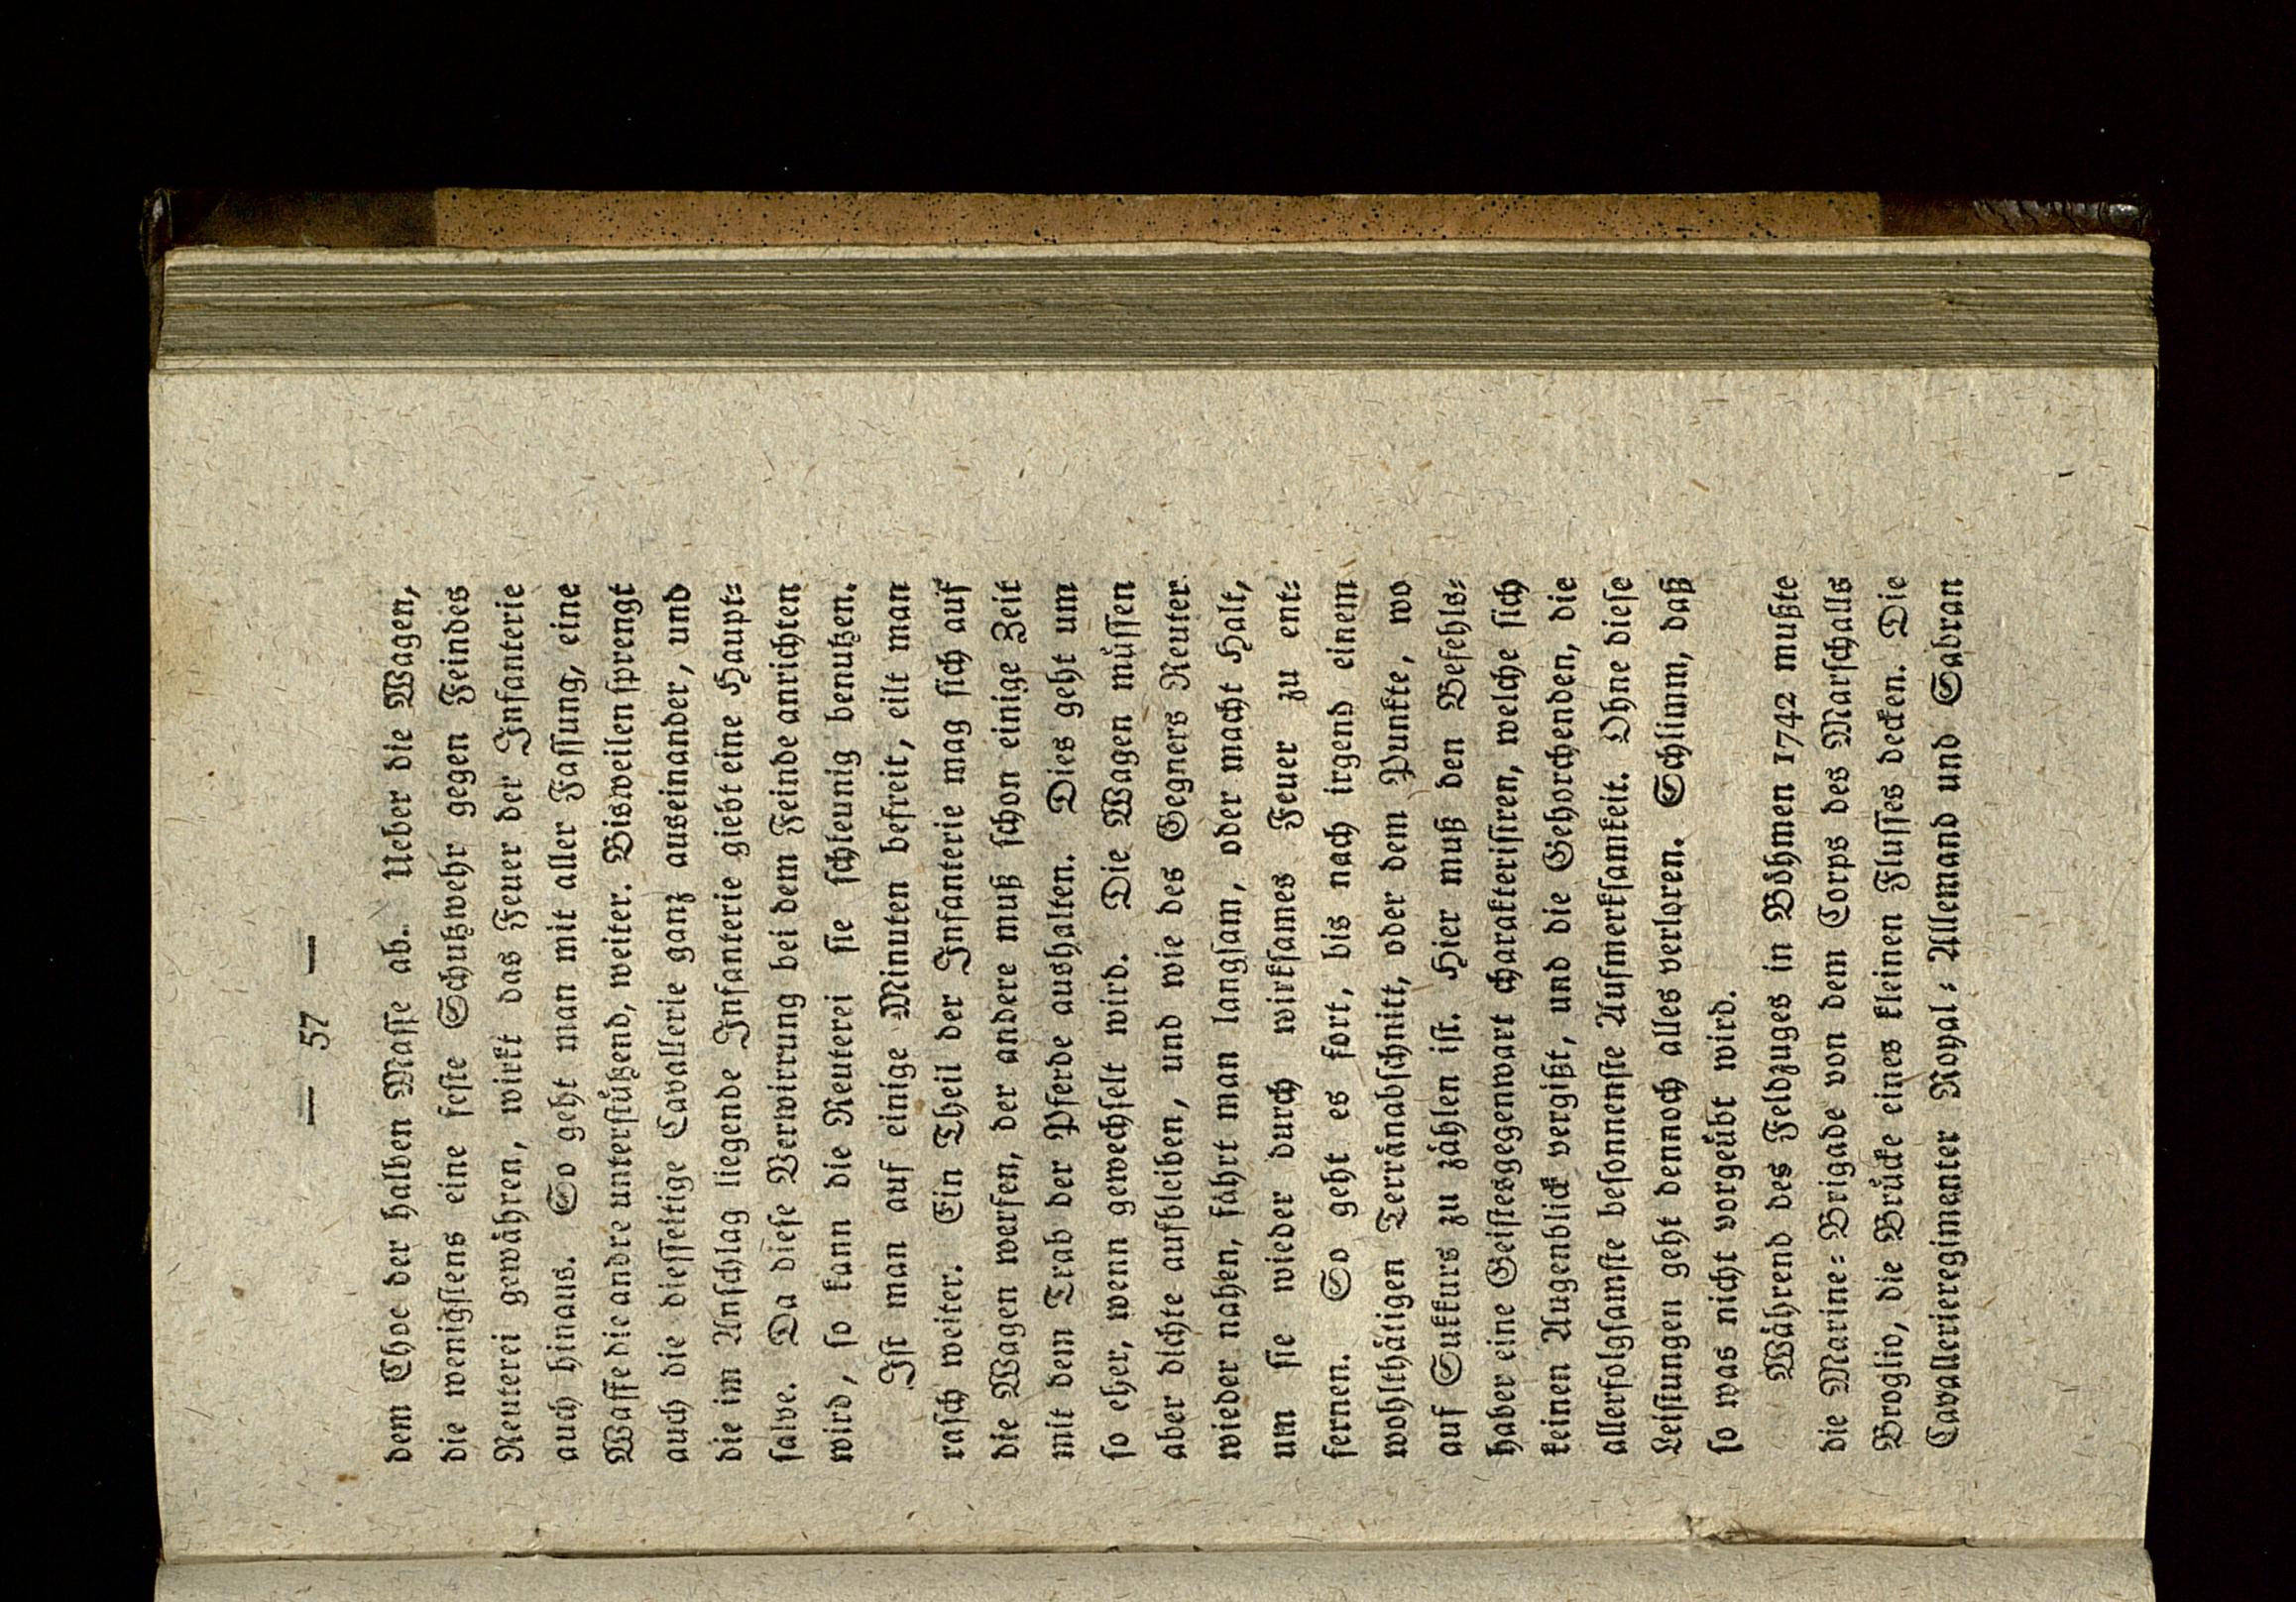 — 57 —
dem Choc der halben Masse ab. Ueber die Wagen,
die wenigstens eine feste Schutzwehr gegen Feindes
Reuterei gewähren, wirkt das Feuer der Infanterie
auch hinaus. So geht man mit aller Fassung, eine
Waffe die andre unterstützend, weiter. Bisweilen sprengt
auch die diesseitige Cavallerie ganz auseinander, und
die im Anschlag liegende Infanterie giebt eine Haupt-
salve. Da diese Verwirrung bei dem Feinde anrichten
wird, so kann die Reuterei sie schleunig benutzen.
Ist man auf einige Minuten befreit, eilt man
rasch weiter. Ein Theil der Infanterie mag sich auf
die Wagen werfen, der andere muß schon einige Zeit
mit dem Trab der Pferde aushalten. Dies geht um
so eher, wenn gewechselt wird. Die Wagen müssen
aber dichte aufbleiben, und wie des Gegners Reuter
wieder nahen, fährt man langsam, oder macht Halt,
um sie wieder durch wirksames Feuer zu ent-
fernen. So geht es fort, bis nach irgend einem
wohlthätigen Terränabschnitt, oder dem Punkte, wo
auf Sukkurs zu zählen ist. Hier muß den Befehls-
haber eine Geistesgegenwart charakterisiren, welche sich
keinen Augenblick vergißt, und die Gehorchenden, die
allerfolgsamste besonnenste Aufmerksamkeit. Ohne diese
Leistungen geht dennoch alles verloren. Schlimm, daß
so was nicht vorgeübt wird.
Während des Feldzuges in Böhmen 1742 mußte
die Marine-Brigade von dem Corps des Marschalls
Broglio, die Brücke eines kleinen Flusses decken. Die
Cavallerieregimenter Royal-Allemand und Sabran